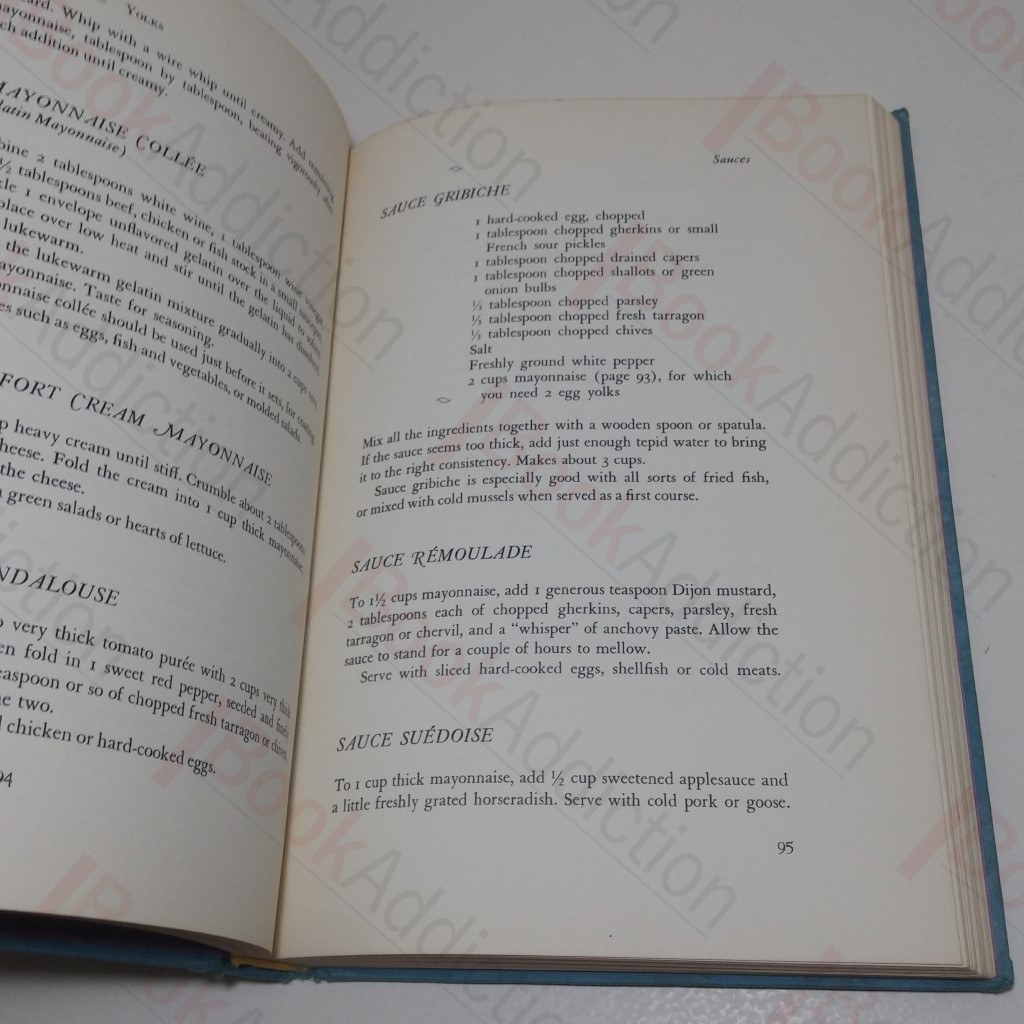 Yolks
ard. Whip with a wire whip until creamy. Add remaining
mayonnaise, tablespoon by tablespoon, beating vigorously after
ch addition until creamy.
MAYONNAISE COLLÉE
latin Mayonnaise)
bine 2 tablespoons white wine, 1 tablespoon wine vinegar,
½ tablespoons beef, chicken or fish stock in a small saucepan.
kle 1 envelope unflavored gelatin over the liquid to soften.
place over low heat and stir until the gelatin has dissolved.
lukewarm.
the lukewarm gelatin mixture gradually into 2 cups very
ayonnaise. Taste for seasoning.
onnaise collée should be used just before it sets, for coating
es such as eggs, fish and vegetables, or molded salads.
FORT CREAM MAYONNAISE
p heavy cream until stiff. Crumble about 2 tablespoons
cheese. Fold the cream into 1 cup thick mayonnaise,
the cheese.
green salads or hearts of lettuce.
NDALOUSE
very thick tomato purée with 2 cups very thick
en fold in 1 sweet red pepper, seeded and finely
easpoon or so of chopped fresh tarragon or chives,
e two.
chicken or hard-cooked eggs.
94
Sauces
SAUCE GRIBICHE
1 hard-cooked egg, chopped
1 tablespoon chopped gherkins or small
French sour pickles
1 tablespoon chopped drained capers
1 tablespoon chopped shallots or green
onion bulbs
⅓ tablespoon chopped parsley
⅓ tablespoon chopped fresh tarragon
⅓ tablespoon chopped chives
Salt
Freshly ground white pepper
2 cups mayonnaise (page 93), for which
you need 2 egg yolks
Mix all the ingredients together with a wooden spoon or spatula.
If the sauce seems too thick, add just enough tepid water to bring
it to the right consistency. Makes about 3 cups.
Sauce gribiche is especially good with all sorts of fried fish,
or mixed with cold mussels when served as a first course.
SAUCE RÉMOULADE
To 1½ cups mayonnaise, add 1 generous teaspoon Dijon mustard,
2 tablespoons each of chopped gherkins, capers, parsley, fresh
tarragon or chervil, and a "whisper" of anchovy paste. Allow the
sauce to stand for a couple of hours to mellow.
Serve with sliced hard-cooked eggs, shellfish or cold meats.
SAUCE SUÉDOISE
To 1 cup thick mayonnaise, add ½ cup sweetened applesauce and
a little freshly grated horseradish. Serve with cold pork or goose.
95
BookAddiction